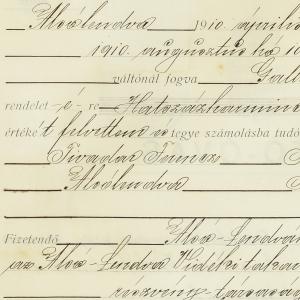 Alsólendva 1910. április
1910. augusztus hó 10
váltónál fogva
rendelet -é- re Hatszázharminc
értéké't felvittem és tegye számolásba tudó
Tivadar Ferencz
Alsólendva
Fizetendő Alsó-Lendván
az Alsó-Lendva Vidéki taka
részvény társaság